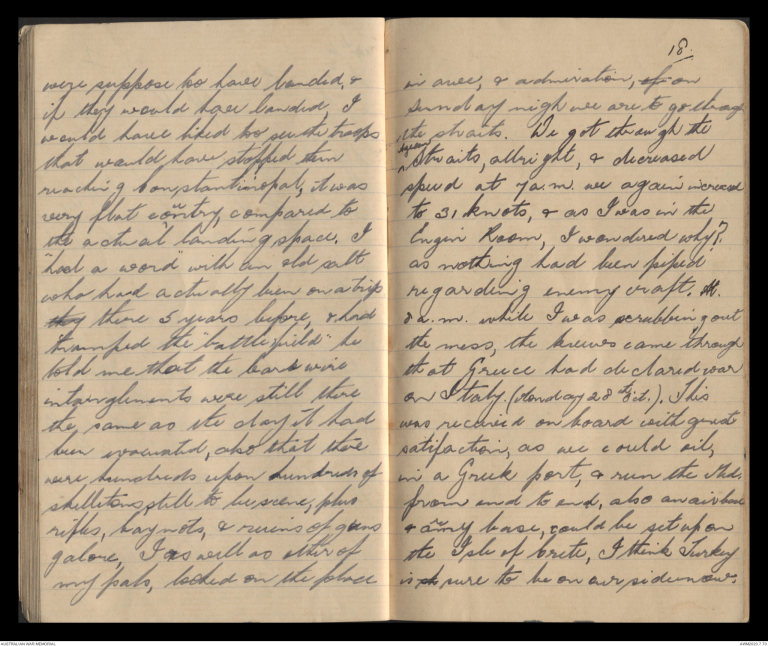 were suppose to have landed, &
if they would have landed, I
would have liked to see the troops
that would have stopped them
reaching Constantinopal, it was
very flat country, compared to
the actual landing space. I
"had a word" with an old salt
who had actually been on a trip
they there 5 years before, & had
tramped the "battlefield" he
told me that the barb wire
intanglements were still there
the same as the day it had
been evacuated, also that there
were hundreds upon hundreds of
skelitons still to be scene, plus
rifles, baynots, & ruins of guns
galore, I as well as other of
my pals, looked on the place
18.
in awe, & admiration, on
Sunday nigh we are to go through
the straits. We got through the
Straits, allright, & decreased
speed at 7 a.m. we again increased
to 31 knots, & as I was in the
Engin Room, I wondered why?.
as nothing had been piped
regarding enemy craft. At.
8 a.m. while I was scrubbing out
the mess, the knews came through
that Greece had declared war
on Italy. (Monday 28th Oct.). This
was received on board with great
satifaction, as we could oil,
in a Greek port, & run the Med,
from end to end, also an air base
& army base, could be set up on
the Isle of Crete, I think Turkey
is sure to be on our side now.
AUSTRALIAN WAR MEMORIAL